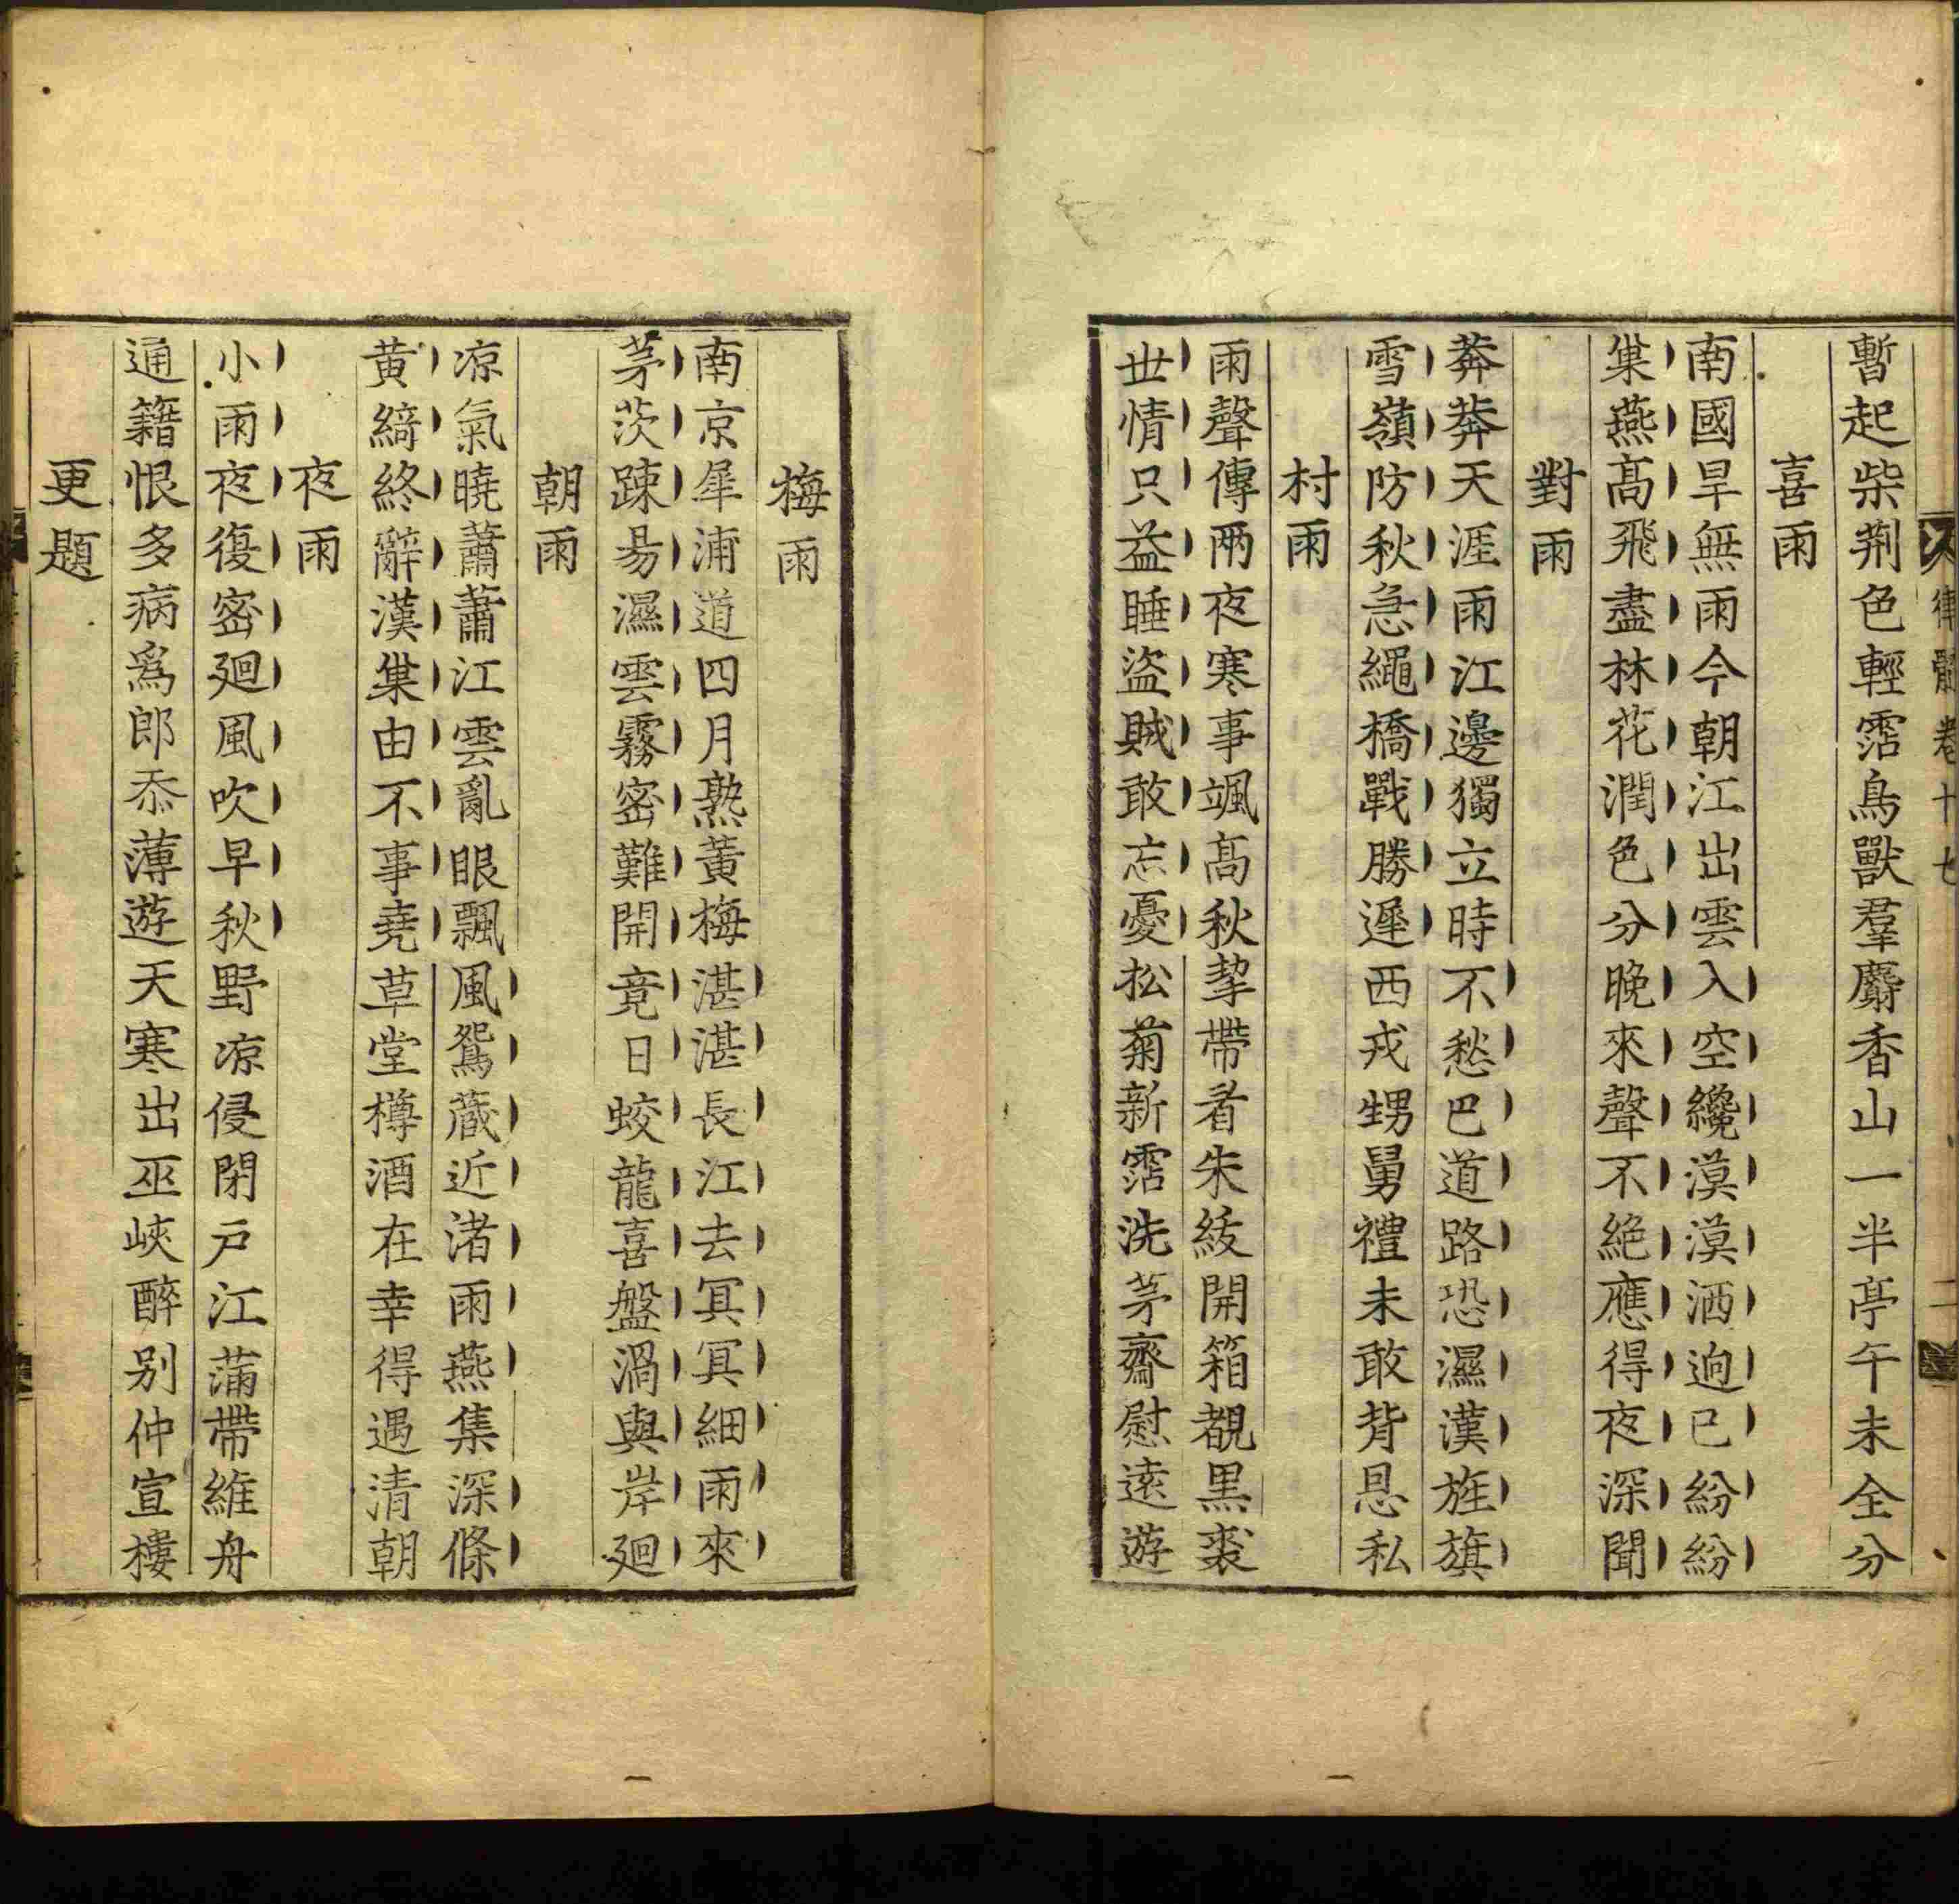 律髓卷十七
二
暫起柴荆色輕霑鳥獸羣麝香山一半亭午未全分
喜雨
南國旱無雨今朝江出雲入空纔漠漠洒逈已紛紛
巢燕高飛盡林花潤色分晚來聲不絶應得夜深聞
對雨
莾莾天涯雨江邊獨立時不愁巴道路恐濕漢旌旗
雪嶺防秋急繩橋戰勝遲西戎甥舅禮未敢背恩私
村雨
雨聲傳兩夜寒事颯高秋挈帶看朱紱開箱覩黒裘
世情只益睡盜賊敢忘憂松菊新霑洗茅齋慰逺遊
梅雨
南京犀浦道四月熟黃梅湛湛長江去冥冥細雨來
茅茨踈昜濕雲霧密難開竟日蛟龍喜盤渦與岸廻
朝雨
凉氣曉蕭蕭江雲亂眼飄風鴛藏近渚雨燕集深條
黄綺終辭漢巢由不事堯草堂樽酒在幸得遇清朝
夜雨
小雨夜復密廻風吹早秋野凉侵閉戸江蒲帶維舟
通籍恨多病爲郎忝薄遊天寒出巫峽醉别仲宣樓
更題